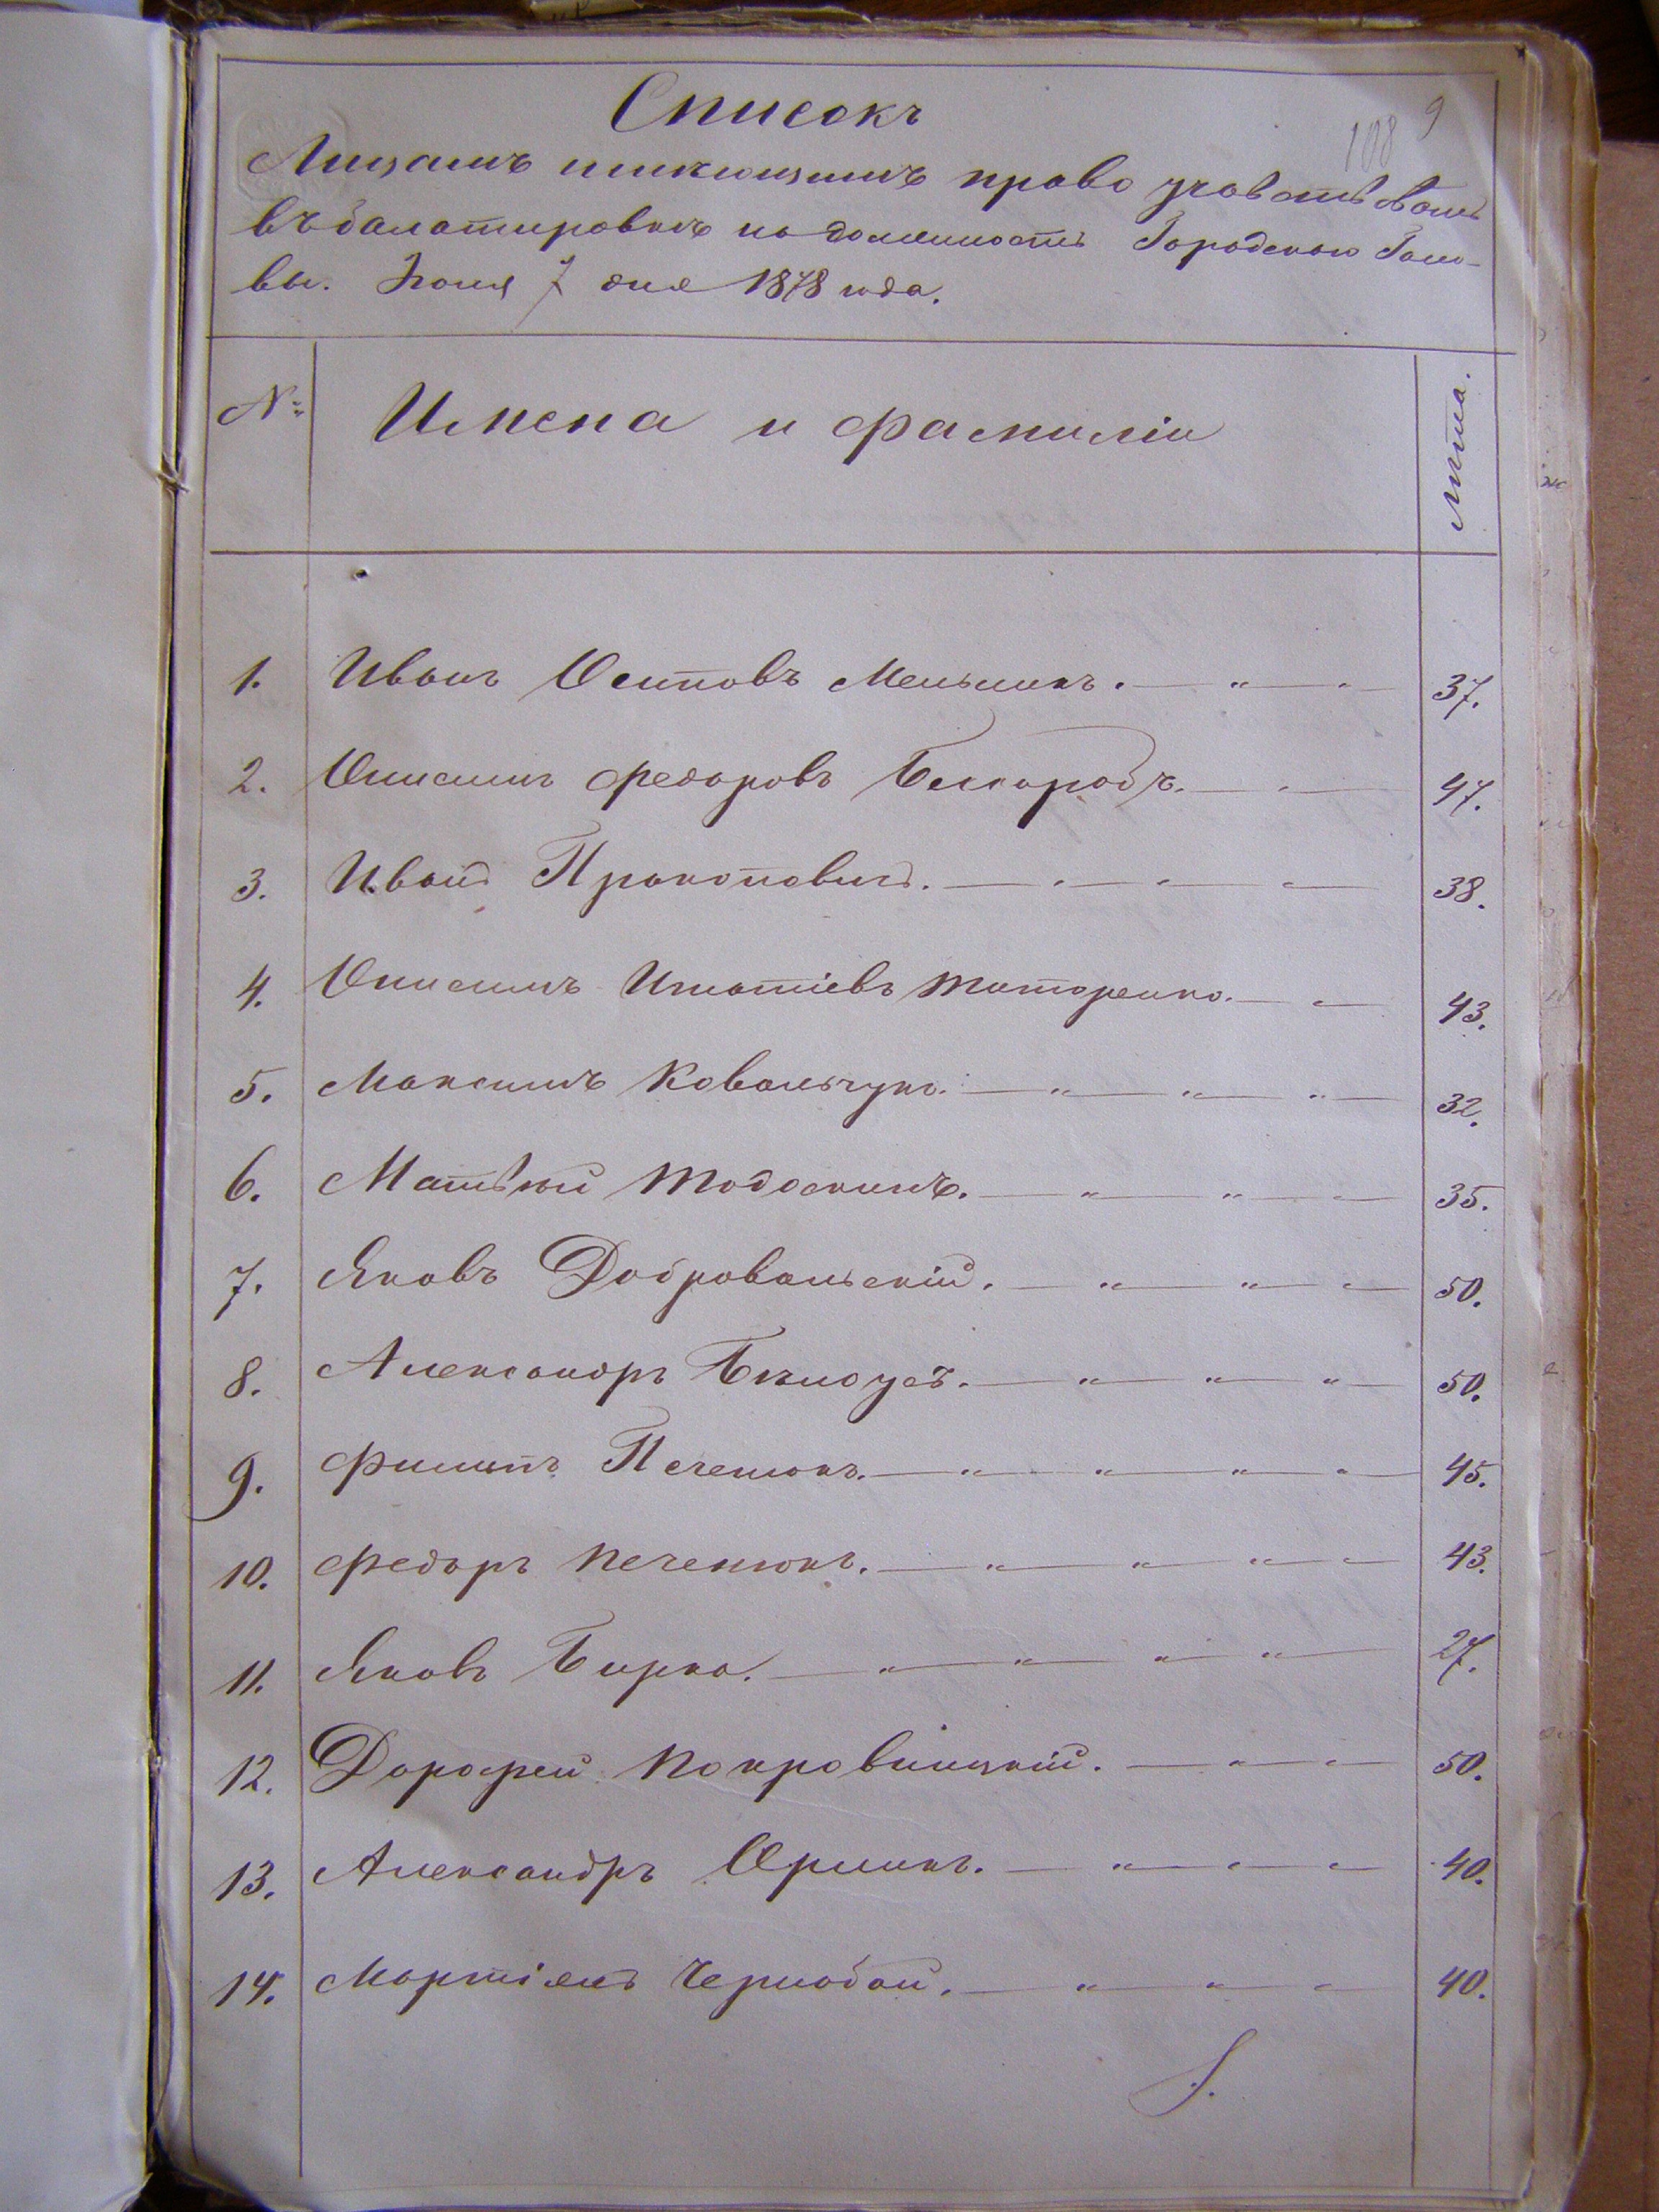 Списокъ
108 9
Лицамъ имѣющимъ право участвовать
въ балатировкѣ на должность Городскаго Голо-
вы. Іюня 7 дня 1878 года.
№ Имена и фамиліи Лѣта.
1. Иванъ Осиповъ Меньшикъ. 37.
2. Онисимъ Федоровъ Бѣлобродъ. 47.
3. Иванъ Прокоповичъ. 38.
4. Онисимъ Игнатіевъ Титаренко. 43.
5. Максимъ Ковальчукъ. 32.
6. Матвѣй Тодоскимъ. 35.
7. Яковъ Добровольскій. 50.
8. Александръ Бѣлоусъ. 50.
9. Филипъ Печенюкъ. 45.
10. Федоръ Печенюкъ. 43.
11. Яковъ Бирка. 27.
12. Дорофей Покровницкій. 50.
13. Александръ Орликъ. 40.
14. Мартіянъ Чернобай. 40.